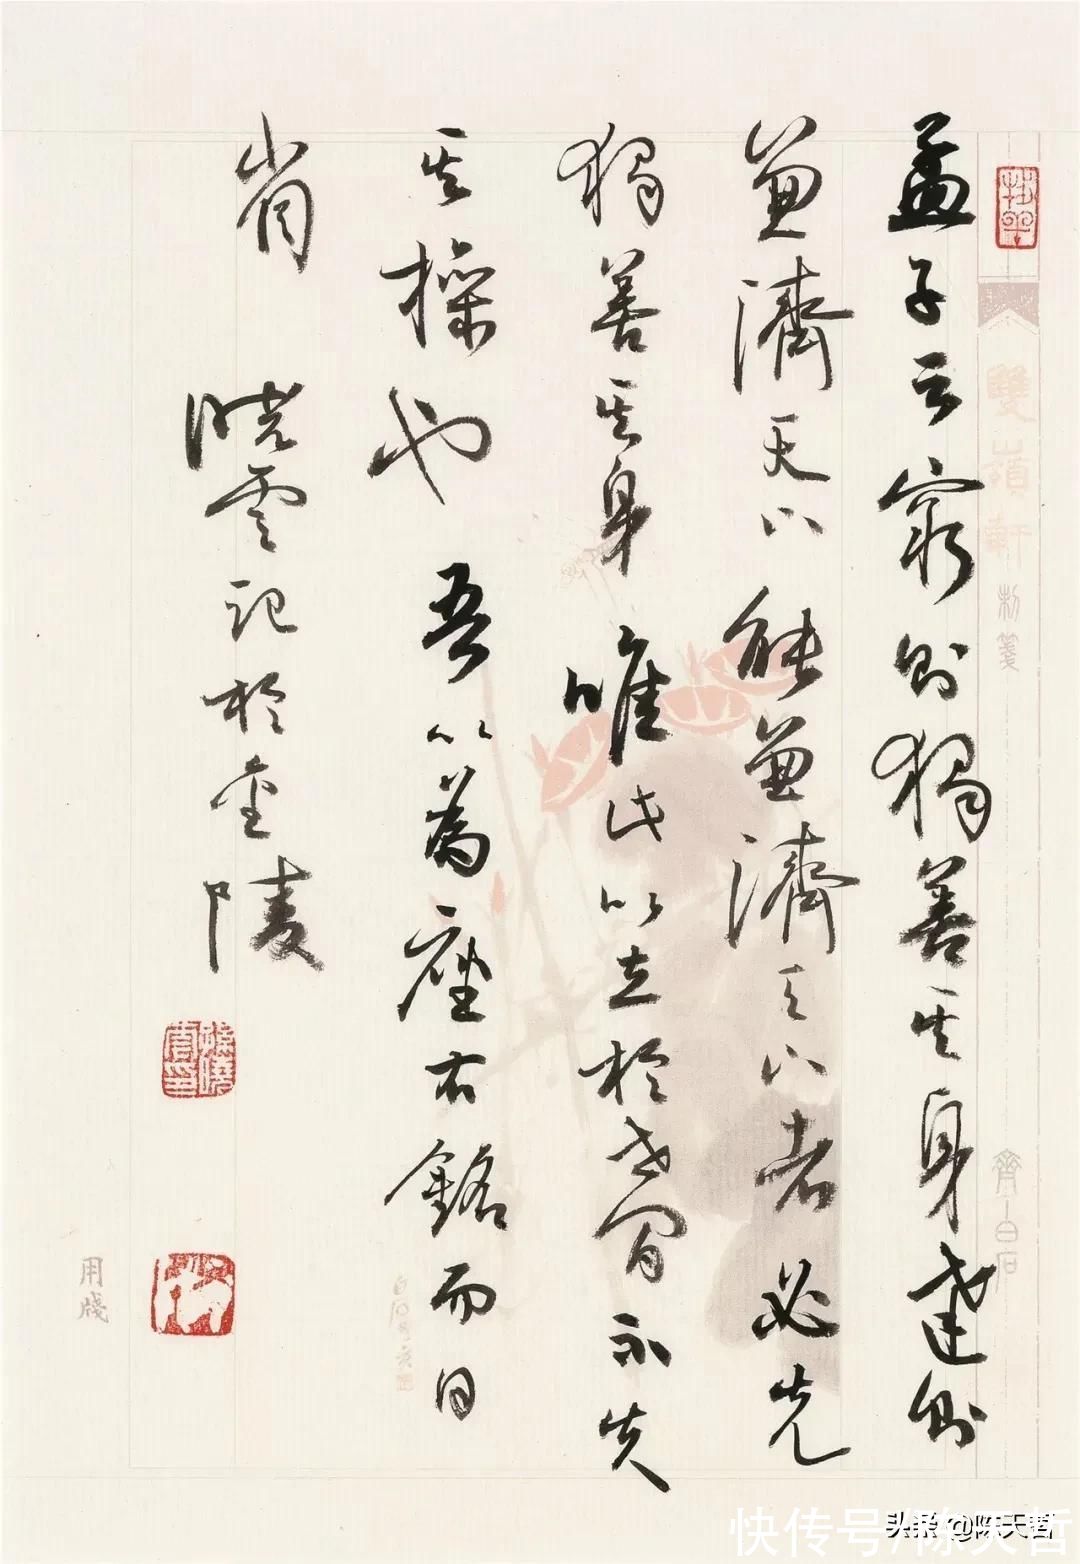 孟子云窮則獨善其身達則
兼濟天下能兼濟天下者必先
獨善其身唯此以立於世間不失
其操也吾以為座右銘而日
省 曉雲記於金陵
雙嶺軒制箋
齊白石
用箋
快传号/陈天哲
头条 @陈天哲